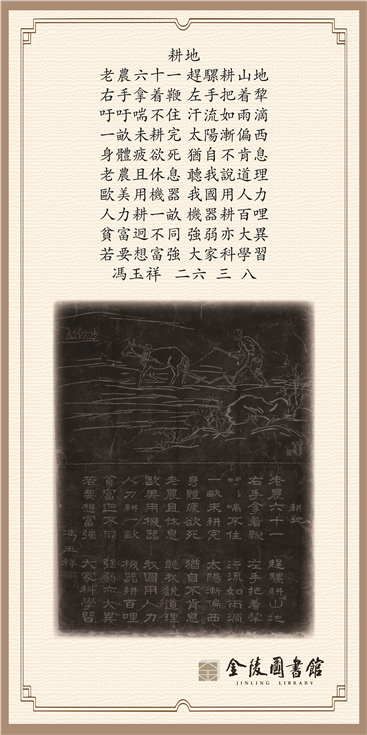 耕地
老農六十一 趕騾耕山地
右手拿着鞭 左手把着犂
吁吁喘不住 汗流如雨滴
一畝未耕完 太陽漸偏西
身體疲欲死 猶自不肯息
老農且休息 聽我說道理
歐美用機器 我國用人力
人力耕一畝 機器耕百哩
貧富迥不同 強弱亦大異
若要想富強 大家科學習
馮玉祥 二六 三 八
耕地
老農六十一 趕騾耕山地
右手拿着鞭 左手把着犂
吁吁喘不住 汗流如雨滴
一畝未耕完 太陽漸偏西
身體疲欲死 猶自不肯息
老農且休息 聽我說道理
歐美用機器 我國用人力
人力耕一畝 機器耕百哩
貧富迥不同 強弱亦大異
若要想富強 大家科學習
馮玉祥
金陵圖書館
JINLING LIBRARY